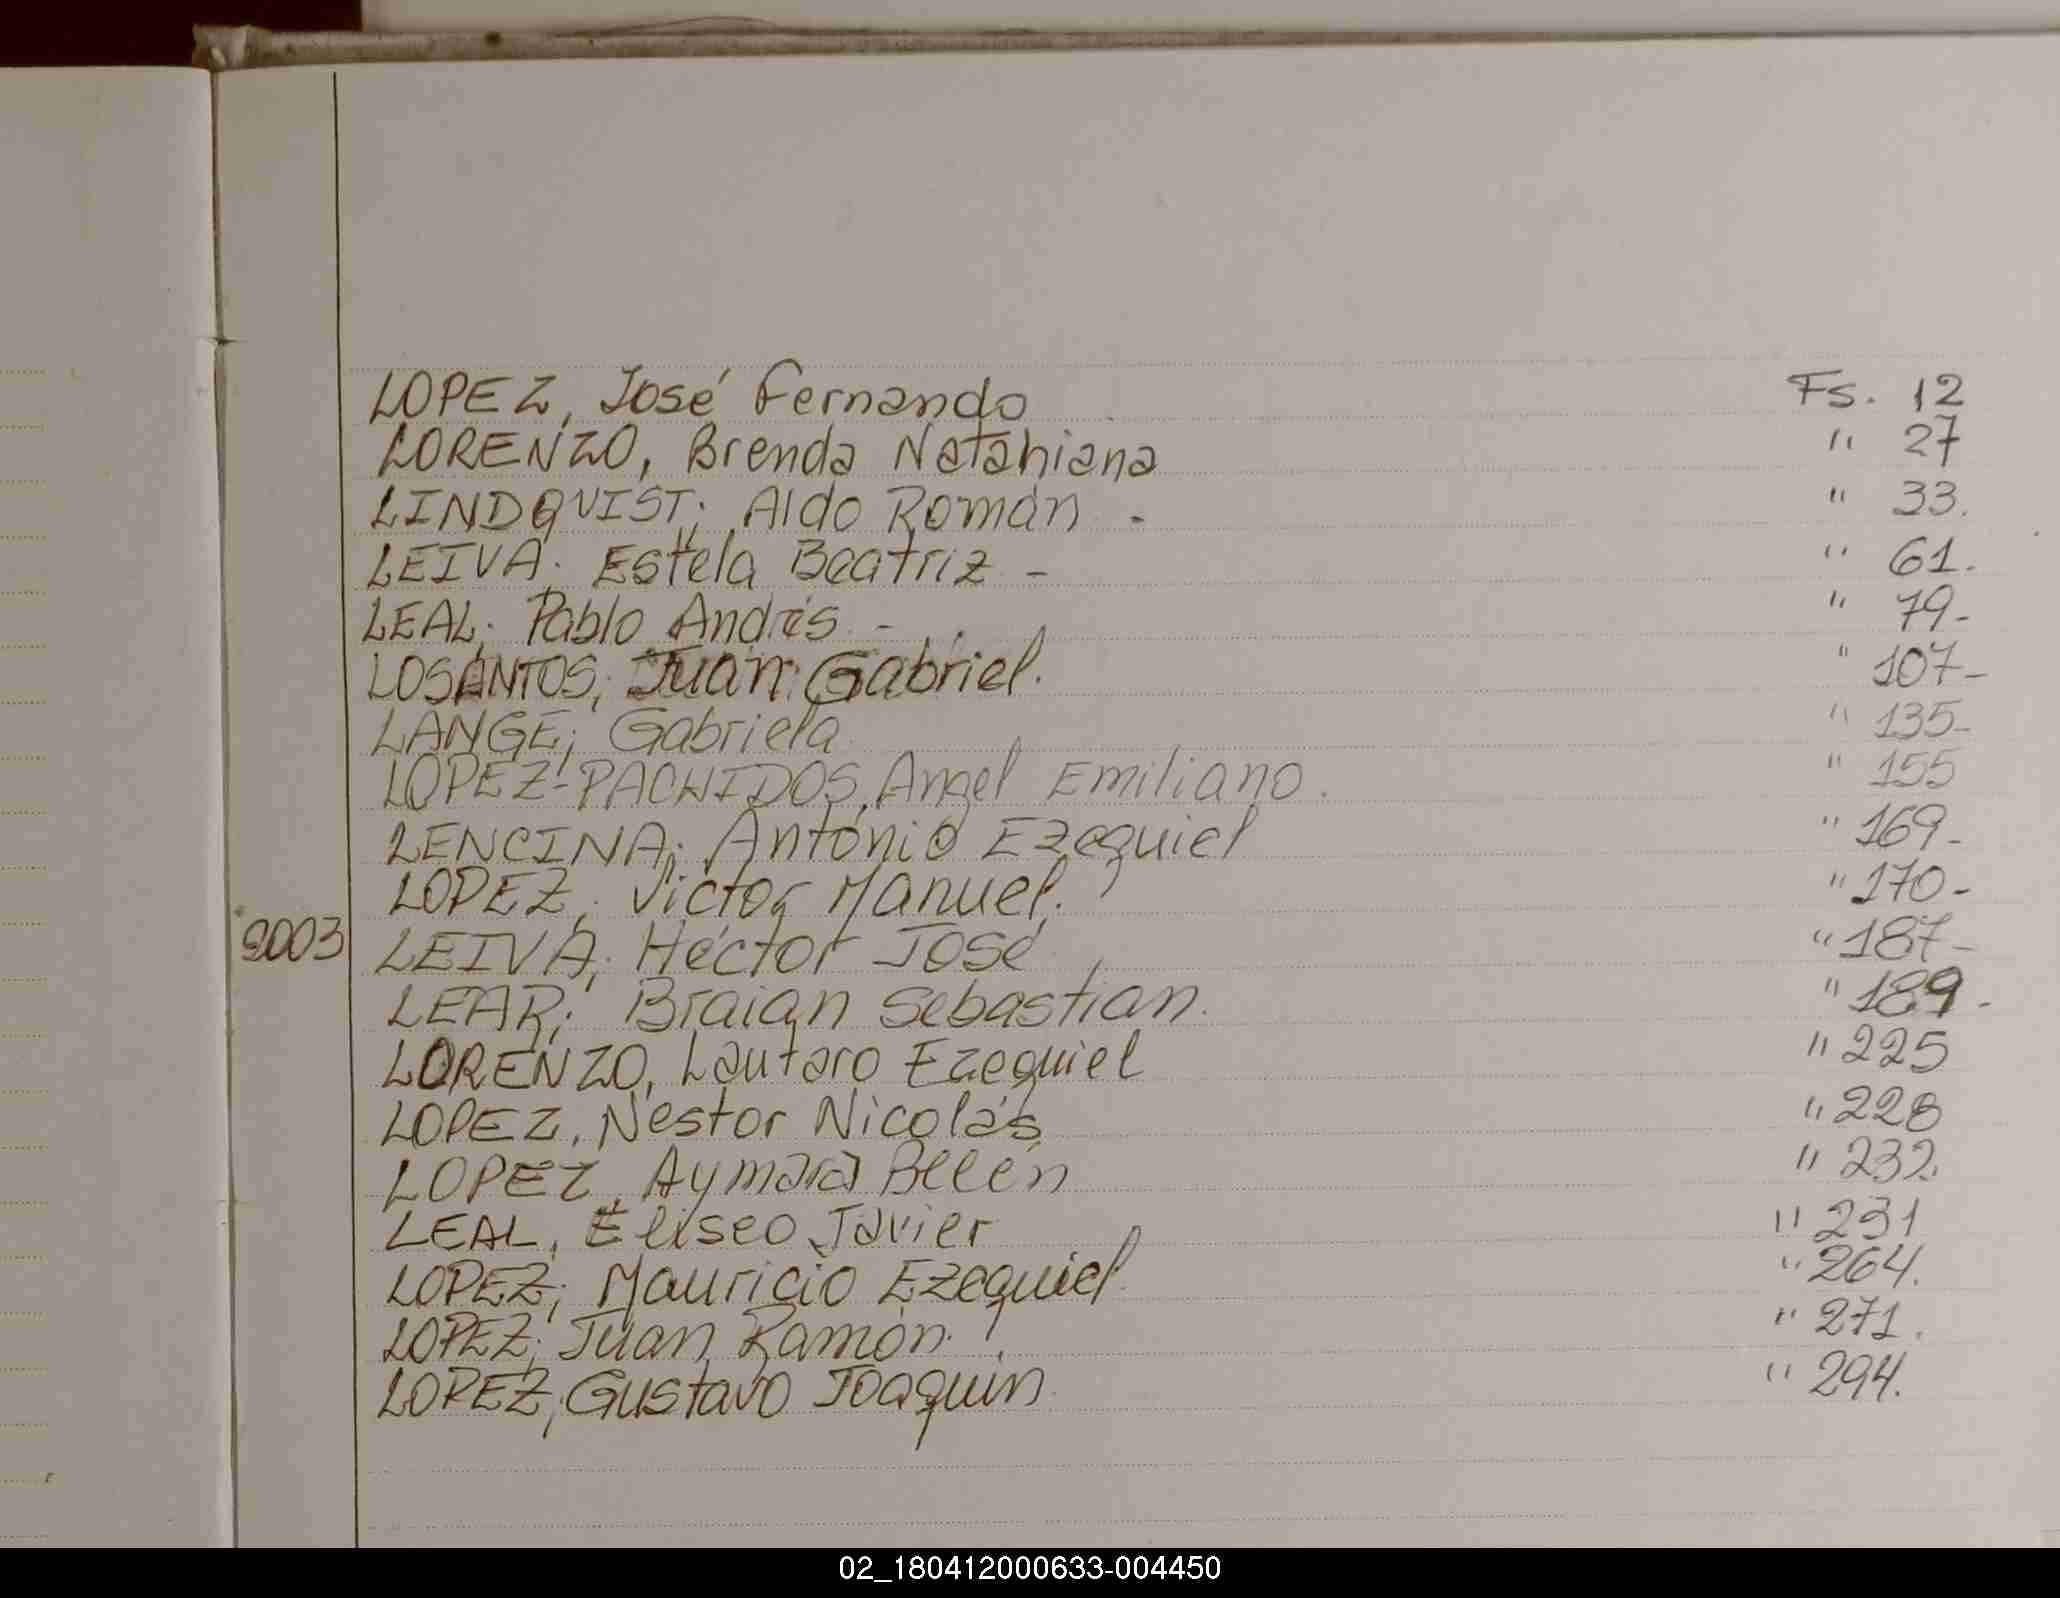 LOPEZ, José Fernando Fs. 12
LORENZO, Brenda Natahiana " 27
LINDQUIST; Aldo Román - " 33.
LEIVA; Estela Beatriz - " 61.
LEAL; Pablo Andrés - " 79-
LOSANTOS; Juan Gabriel. " 107-
LANGE; Gabriela " 135-
LOPEZ-PACHIDOS, Angel Emiliano. " 155
LENCINA; Antonio Ezequiel " 169-
LOPEZ; Victor Manuel. " 170-
2003 LEIVA; Héctor José " 187-
LEAR; Braian Sebastian. " 189-
LORENZO, Lautaro Ezequiel " 225
LOPEZ, Néstor Nicolás " 228
LOPEZ, Aymara Belén " 232.
LEAL, Eliseo Javier " 231
LOPEZ; Mauricio Ezequiel. " 264.
LOPEZ; Juan Ramón. " 271.
LOPEZ; Gustavo Joaquín. " 294.
02_180412000633-004450